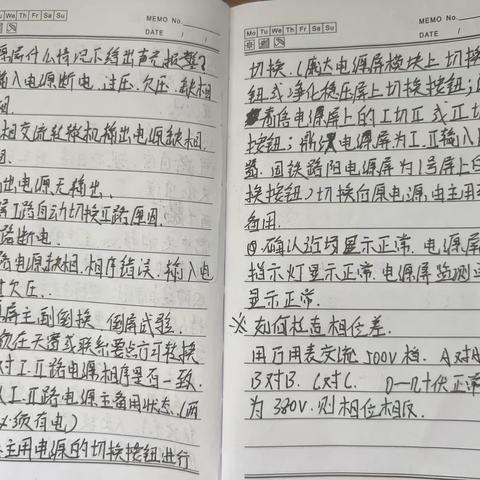 Fr Sa Su
MEMO No.
DATE / /
屏什么情况下给出声光报警？
输入电源断电、过压、欠压、缺相
相交流软微机输出电源缺相.
出电源无输出.
I路自动切换II路原因.
路断电.
路电源缺相.相序错误.输入电
欠压.
屏主副倒换、倒屏试验.
须在天窗或联系要点方可转换
对I.II路电源相序是否一致.
认I.II路电源主备用状态.(两
必须有电)
主用电源的切换按钮进行
Mo Tu We Th Fr Sa Su
MEMO No.
DATE / /
切换.(鹰达电源屏模块上切换
钮或净化稳压屏上切换按钮;
倍电源屏上的I切II或II切
按钮;鼎汉电源屏为I.II输入
器.固铁路阳电源屏为1号屏上
换按钮)切换后原电源由主用
备用.
④.确认近均显示正常.电源屏
指示灯显示正常.电源屏监测
显示正常.
※如何检查相位差.
用万用表交流500V档.A对A
B对B.C对C. 0—几十伏正常
为380V.则相位相反.